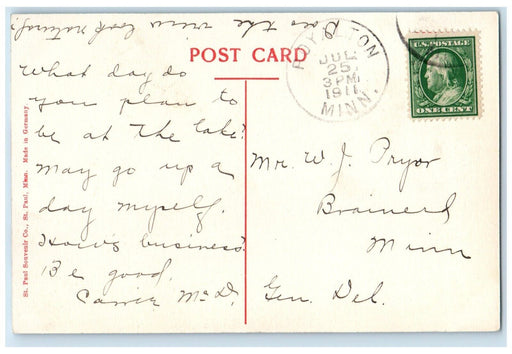 Does the view look natural?
POST CARD
What day do
you plan to
be at the lake?
May go up a
day myself.
How's business?
Be good.
Carrie McD.
ROYALTON
JUL
25
3 PM
1911
MINN.
U.S. POSTAGE
ONE CENT
Mr. W. J. Pryor
Brainerd
Minn
Gen. Del.
St. Paul Souvenir Co., St. Paul, Minn. Made in Germany